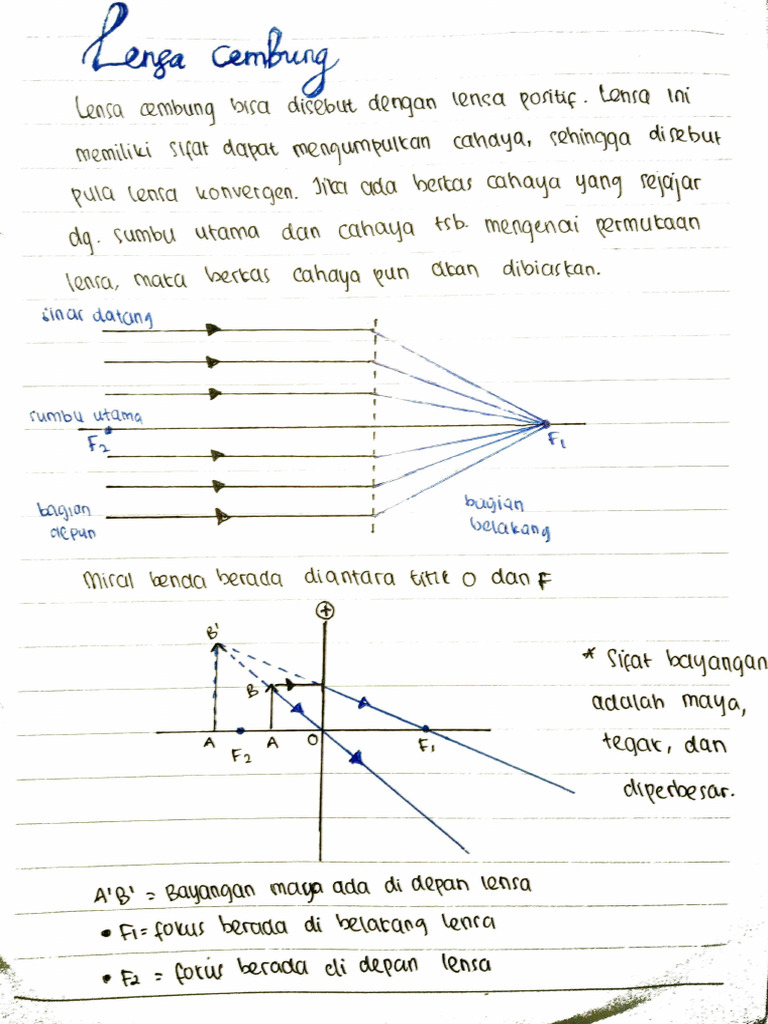 Lensa cembung
Lensa cembung bisa disebut dengan lensa positif. Lensa ini
memiliki sifat dapat mengumpulkan cahaya, sehingga disebut
pula lensa konvergen. Jika ada berkas cahaya yang sejajar
dg. sumbu utama dan cahaya tsb. mengenai permukaan
lensa, maka berkas cahaya pun akan dibiaskan.
sinar datang
sumbu utama
F2
F1
bagian
depan
bagian
belakang
Misal benda berada diantara titik O dan F
+
B'
B
A
F2
A
O
F1
* Sifat bayangan
adalah maya,
tegak, dan
diperbesar.
A'B' = Bayangan maya ada di depan lensa
• F1 = fokus berada di belakang lensa
• F2 = fokus berada di depan lensa